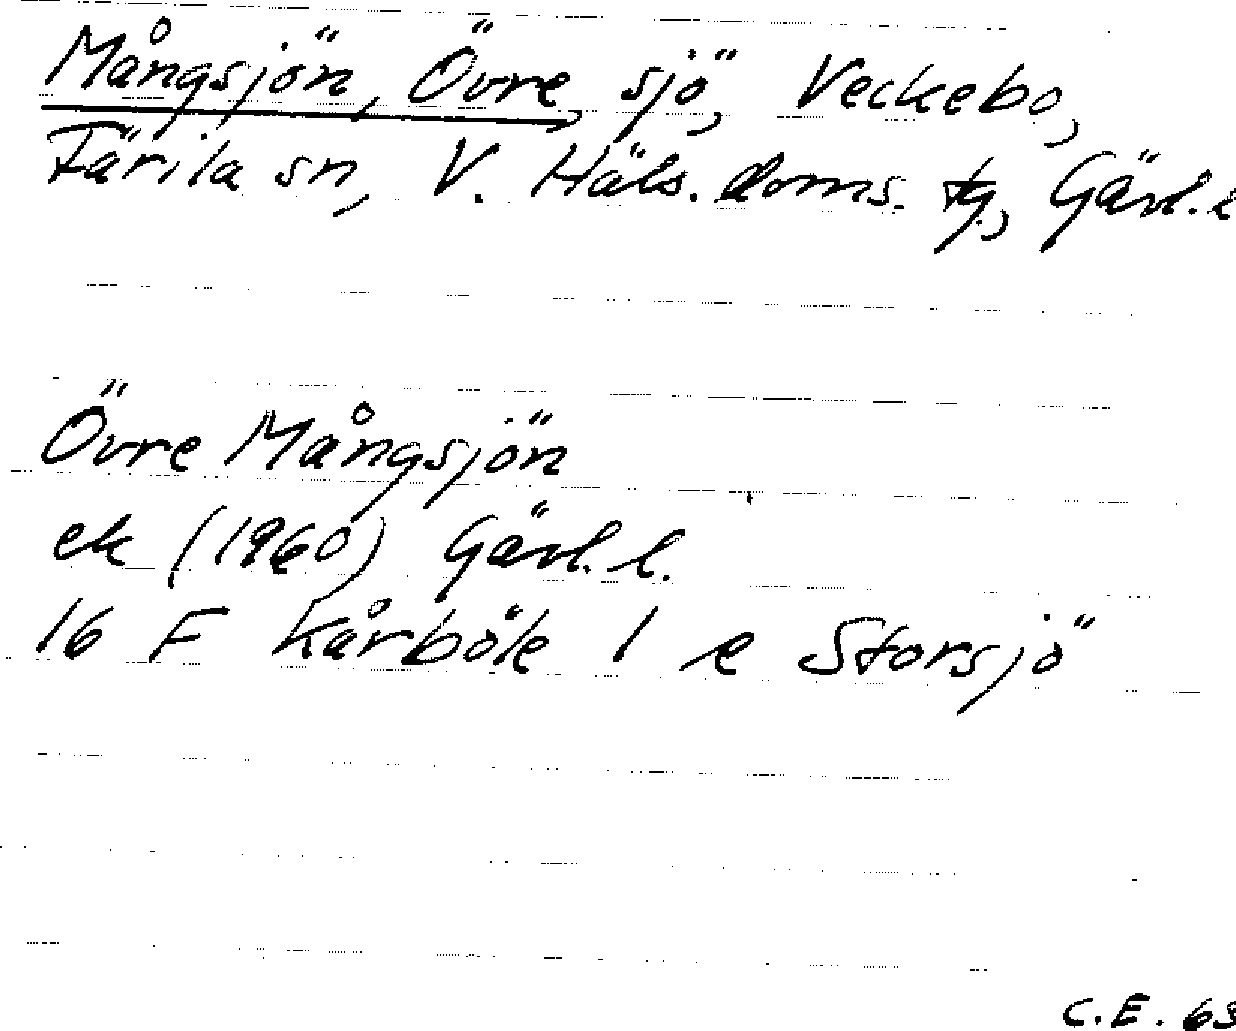 Mångsjön, Övre, sjö, Veckebo,
Färila sn, V. Häls. doms. tg, Gävl. l
Övre Mångsjön
ek (1960) Gävl. l.
16 F Kårböle 1 e Storsjö
C.E. 63